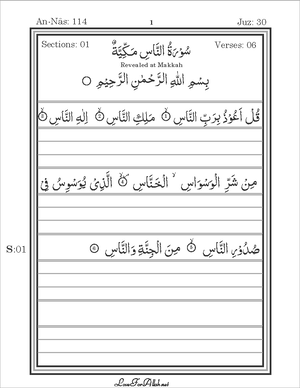 An-Nās: 114 1 Juz: 30
Sections: 01 سُوْرَةُ النَّاسِ مَكِّيَّةٌ Verses: 06
Revealed at Makkah
بِسْمِ اللهِ الرَّحْمٰنِ الرَّحِيْمِ
قُلْ اَعُوْذُ بِرَبِّ النَّاسِ ۝١ مَلِكِ النَّاسِ ۝٢ اِلٰهِ النَّاسِ ۝٣
مِنْ شَرِّ الْوَسْوَاسِ ۙ الْخَنَّاسِ ۝٤ الَّذِيْ يُوَسْوِسُ فِيْ
S:01 صُدُوْرِ النَّاسِ ۝٥ مِنَ الْجِنَّةِ وَالنَّاسِ ۝٦
LoveForAllah.net